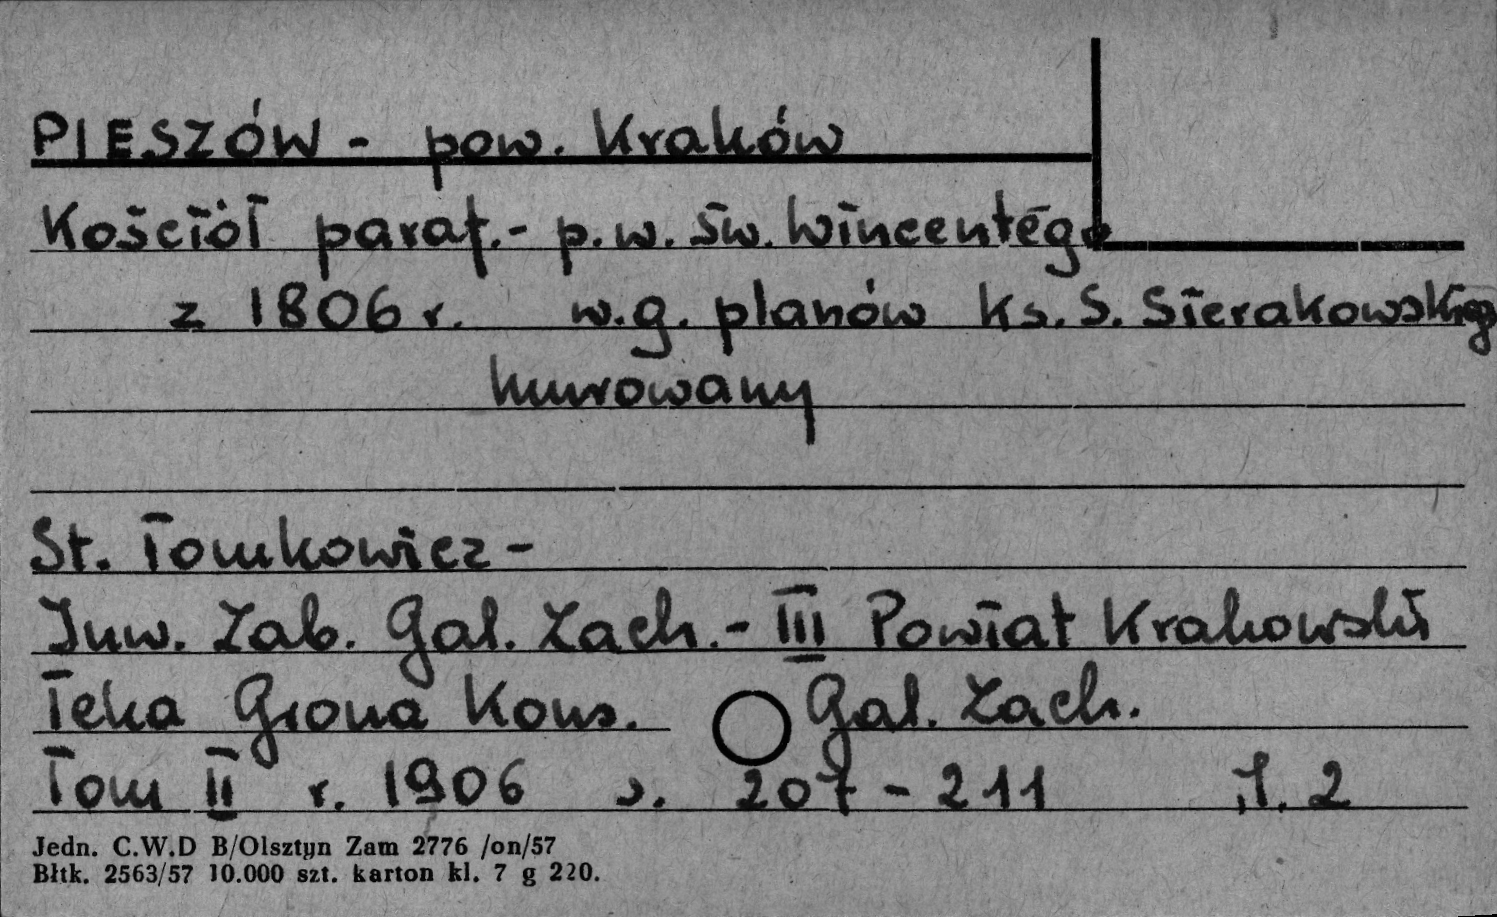 PIESZÓW - pow. Kraków
Kościół paraf.- p.w. św. Wincentego
z 1806 r. w.g. planów ks. S. Sierakowskiego
murowany
St. Tomkowicz -
Inw. Zab. Gal. Zach.- III Powiat Krakowski
Teka Grona Kons. Gal. Zach.
Tom II r. 1906 s. 207 - 211 , 1. 2
Jedn. C.W.D B/Olsztyn Zam 2776 /on/57
Błtk. 2563/57 10.000 szt. karton kl. 7 g 220.